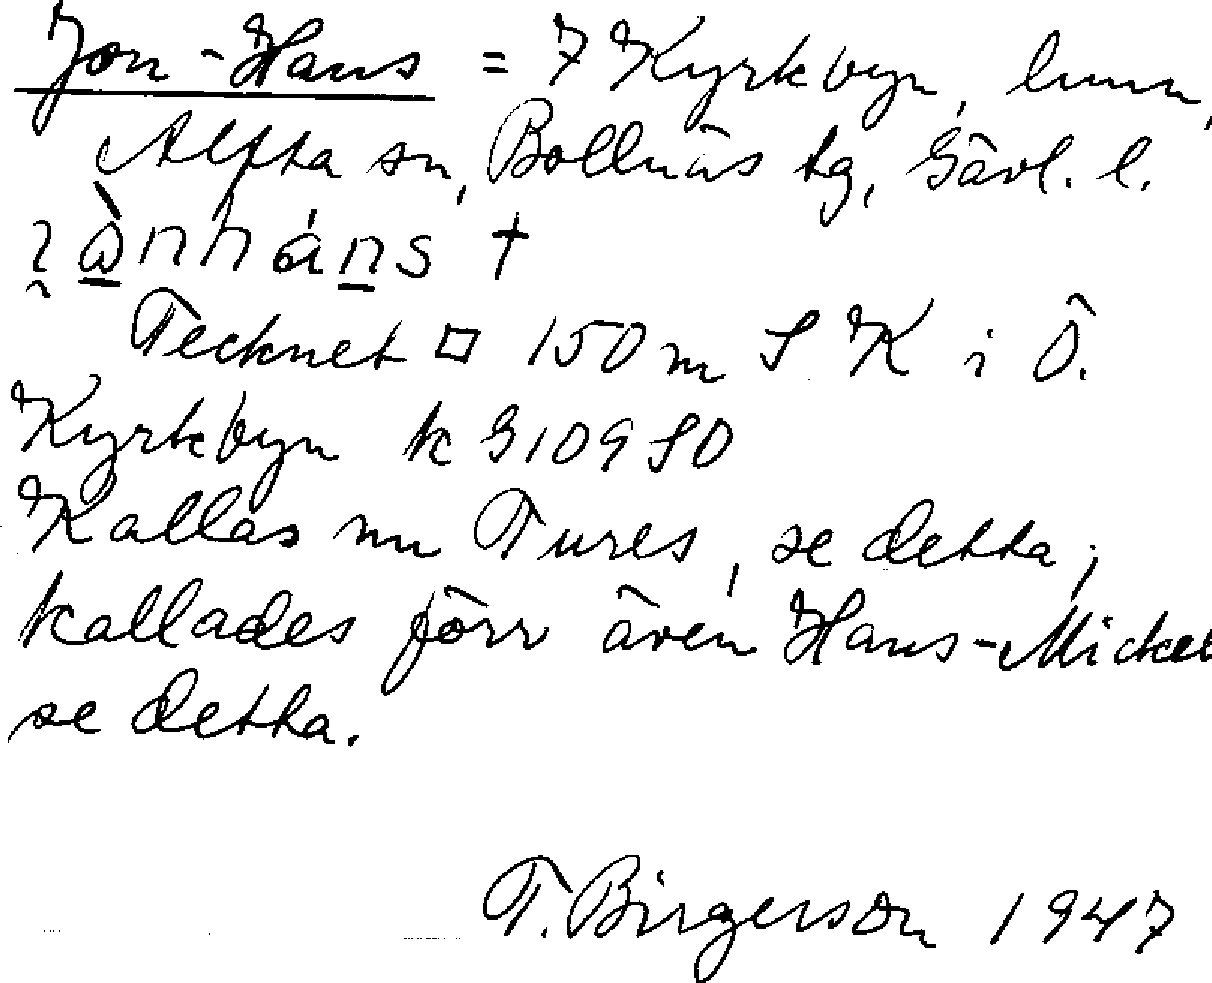 Jon-Hans = 7 Kyrkbyn, hmn,
Alfta sn, Bollnäs tg, Gävl. l.
Tecknet □ 150 m S K i Ö.
Kyrkbyn k G109 SO
Kallas nu Tures, se detta;
kallades förr även Hans-Mickel
se detta.
T. Birgerson 1947